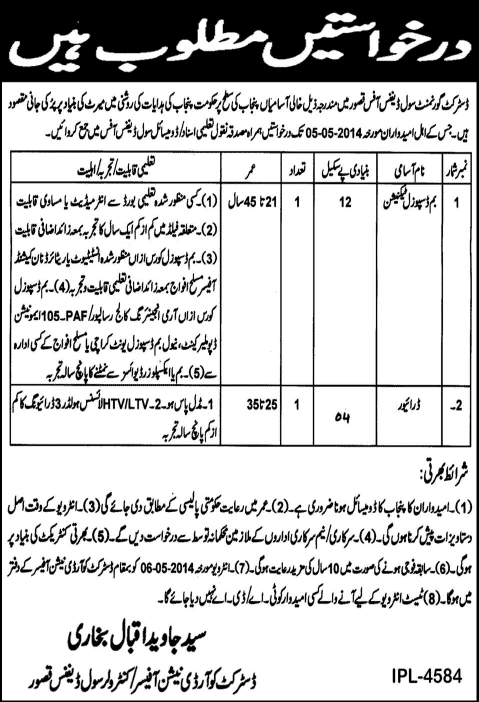 درخواستیں مطلوب ہیں
ڈسٹرکٹ گورنمنٹ سول ڈیفنس آفس قصور میں مندرجہ ذیل خالی آسامیاں پنجاب کی سطح پر حکومت پنجاب کی ہدایات کی روشنی میں میرٹ کی بنیاد پر پر کی جانی مقصود
ہیں۔ جس کے اہل امیدواران مورخہ 05-05-2014 تک درخواستیں ہمراہ مصدقہ نقول تعلیمی اسناد/ڈومیسائل سول ڈیفنس آفس میں جمع کروائیں۔
نمبر شمار نام آسامی بنیادی پے سکیل تعداد عمر تعلیمی قابلیت/تجربہ/اہلیت
1 بم ڈسپوزل ٹیکنیشن 12 1 21 تا 45 سال (1)۔ کسی منظور شدہ تعلیمی بورڈ سے انٹرمیڈیٹ یا مساوی قابلیت
(2)۔ متعلقہ فیلڈ میں کم از کم ایک سال کا تجربہ بمعہ زائد اضافی قابلیت
(3)۔ بم ڈسپوزل کورس ازاں منظور شدہ انسٹیٹیوٹ یا ریٹائرڈ نان کمیشنڈ
آفیسر مسلح افواج بمعہ زائد اضافی تعلیمی قابلیت و تجربہ (4)۔ بم ڈسپوزل
کورس ازاں آرمی انجینئرنگ کالج رسالپور/PAF-105 ایمونیشن
ڈپو ملیر کینٹ، نیول بم ڈسپوزل یونٹ کراچی یا مسلح افواج کے کسی ادارہ
سے (5)۔ بم یا ایکسپلوزو ڈیوائسز سے نمٹنے کا پانچ سالہ تجربہ
2۔ ڈرائیور 04 1 25 تا 35 1۔ مڈل پاس ہو۔ 2۔ HTV/LTV لائسنس ہولڈر 3 ڈرائیونگ کا کم
از کم پانچ سالہ تجربہ
شرائط بھرتی:
(1)۔ امیدواران کا پنجاب کا ڈومیسائل ہونا ضروری ہے۔ (2)۔ عمر میں رعایت حکومتی پالیسی کے مطابق دی جائے گی (3)۔ انٹرویو کے وقت اصل
دستاویزات پیش کرنا ہوں گی۔ (4)۔ سرکاری/نیم سرکاری اداروں کے ملازمین محکمانہ توسط سے درخواست دیں گے۔ (5)۔ بھرتی کنٹریکٹ کی بنیاد پر
ہوگی۔ (6)۔ سابقہ فوجی ہونے کی صورت میں 10 سال کی مزید رعایت ہوگی۔ (7)۔ انٹرویو مورخہ 06-05-2014 کو بمقام ڈسٹرکٹ کوآرڈی نیشن آفیسر کے دفتر
میں ہوگا۔ (8) ٹیسٹ انٹرویو کے لیے آنے والے کسی امیدوار کو ٹی۔اے/ڈی۔اے نہیں دیا جائے گا۔
سید جاوید اقبال بخاری
ڈسٹرکٹ کوآرڈی نیشن آفیسر/کنٹرولر سول ڈیفنس قصور
IPL-4584